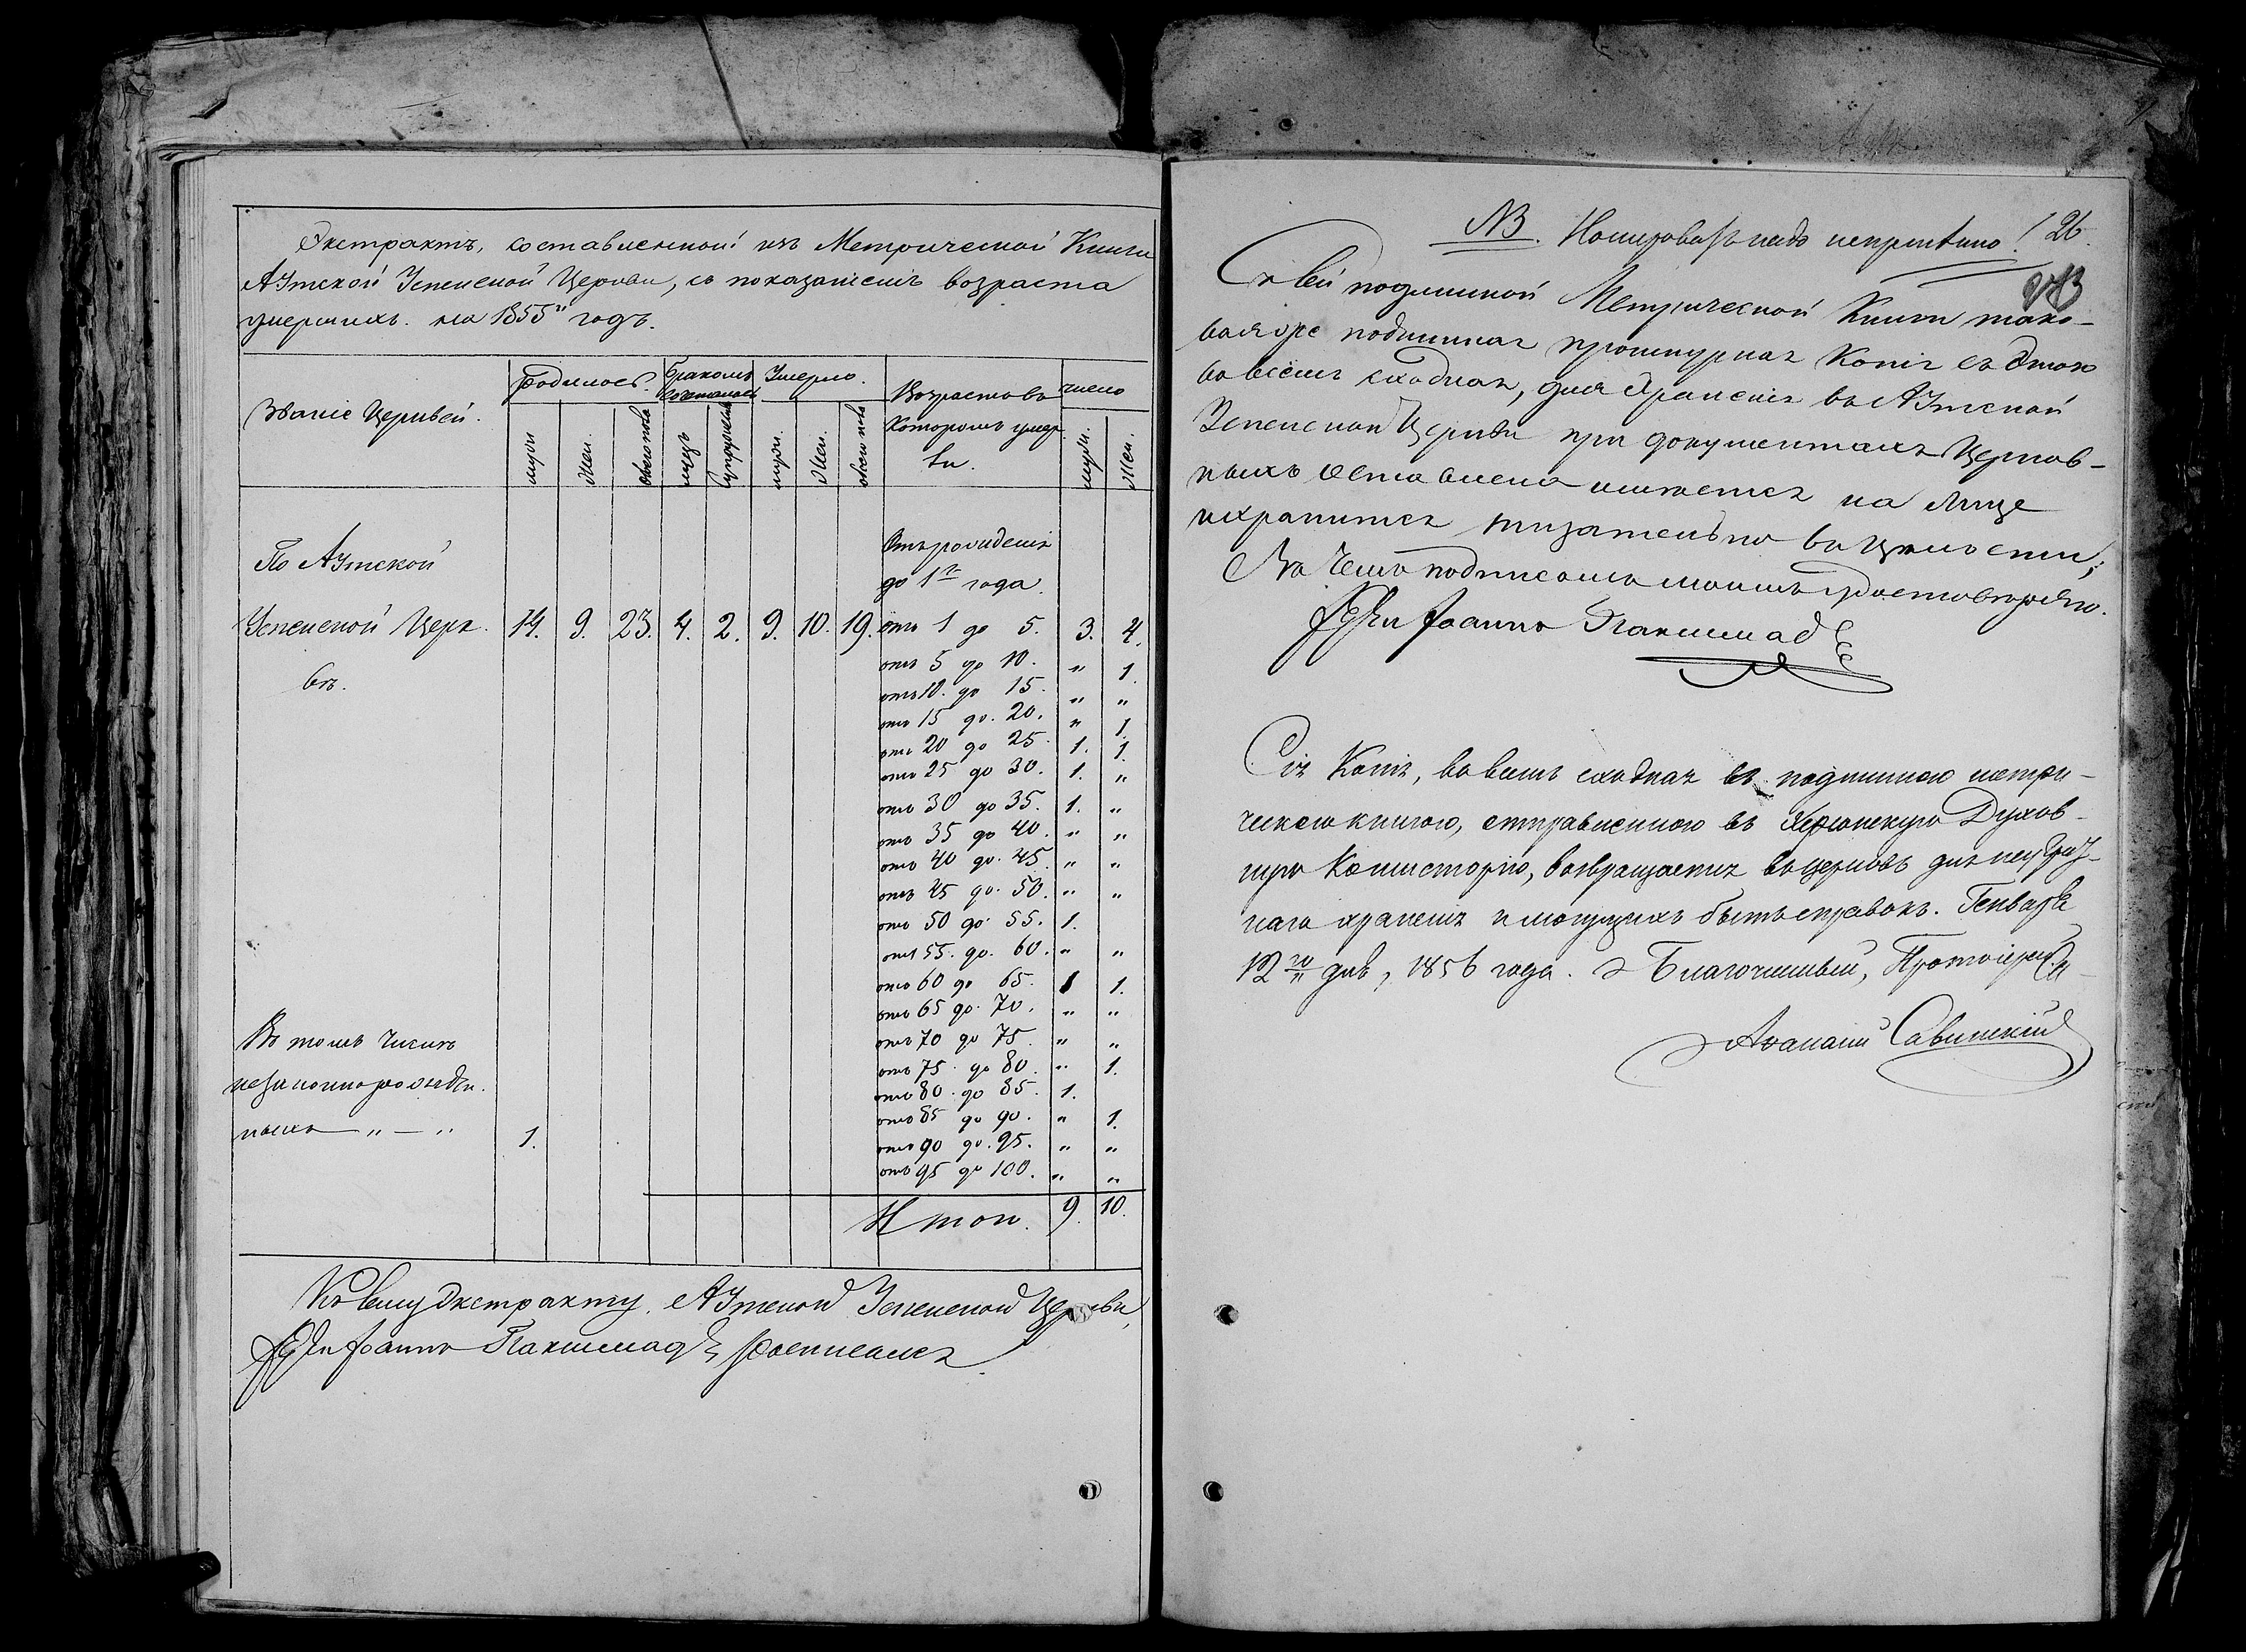 Экстрактъ, составленной изъ Метрической Книги
Аутской Успенской Церкви, съ показаніемъ возраста
умершихъ. на 1855й годъ.
Званіе Церквей.
Родилось.
Бракомъ сочеталось
Умерло.
Возрастовъ которомъ умерли.
число
муж.
Жен.
обоего пола
муж.
Жен.
обоего пола
муж.
Жен.
По Аутской
Успенской Церк
вѣ.
14. 9. 23. 4. 2. 9. 10. 19.
Отъ рожденія
до 1го года.
отъ 1 до 5. 3. 4.
отъ 5 до 10. " 1.
отъ 10. до 15. " "
отъ 15 до. 20. " 1.
отъ 20 до 25. 1. 1.
отъ 25 до 30. 1. "
отъ 30 до 35. 1. "
отъ 35 до 40. " "
отъ 40 до. 45. " "
отъ 45 до. 50. " "
отъ 50 до 55. 1.
отъ 55. до. 60. " "
отъ 60 до 65. 1 1.
отъ 65 до. 70. " "
отъ 70 до 75. " "
отъ 75 до 80. " 1.
отъ 80. до 85. 1.
отъ 85 до 90. " 1.
отъ 90 до. 95. " "
отъ 95 до 100. " "
Въ томъ числѣ
незаконнорожден
ныхъ — " — " 1.
Итои. 9. 10.
Къ сему экстракту, Аутской Успенской Церкви,
Іоаннъ росписался
NB. надо !
26.
Съ сей подлинной Метрической Книги тако-
ваяже подлинная прошнурная Копія съ этою
во всёмъ сходная, для храненія въ Аутской
Успенской Церкви при документахъ Церков-
ныхъ оставлена имѣется на лице
и хранится тщательно въ цѣлости;
Въ чемъ подписомъ моимъ удостовѣряю.
Іоаннъ
Сія Копія, во всемъ сходная съ подлинною метри-
ческою книгою, отправленною въ Херсонскую Духов-
ную Консисторію, возвращается въ церковь для
наго храненія и могущихъ быть справокъ. Генваря
12го дня, 1856 года. Благочинный, Протоіерей
Аѳанасій Савинскій